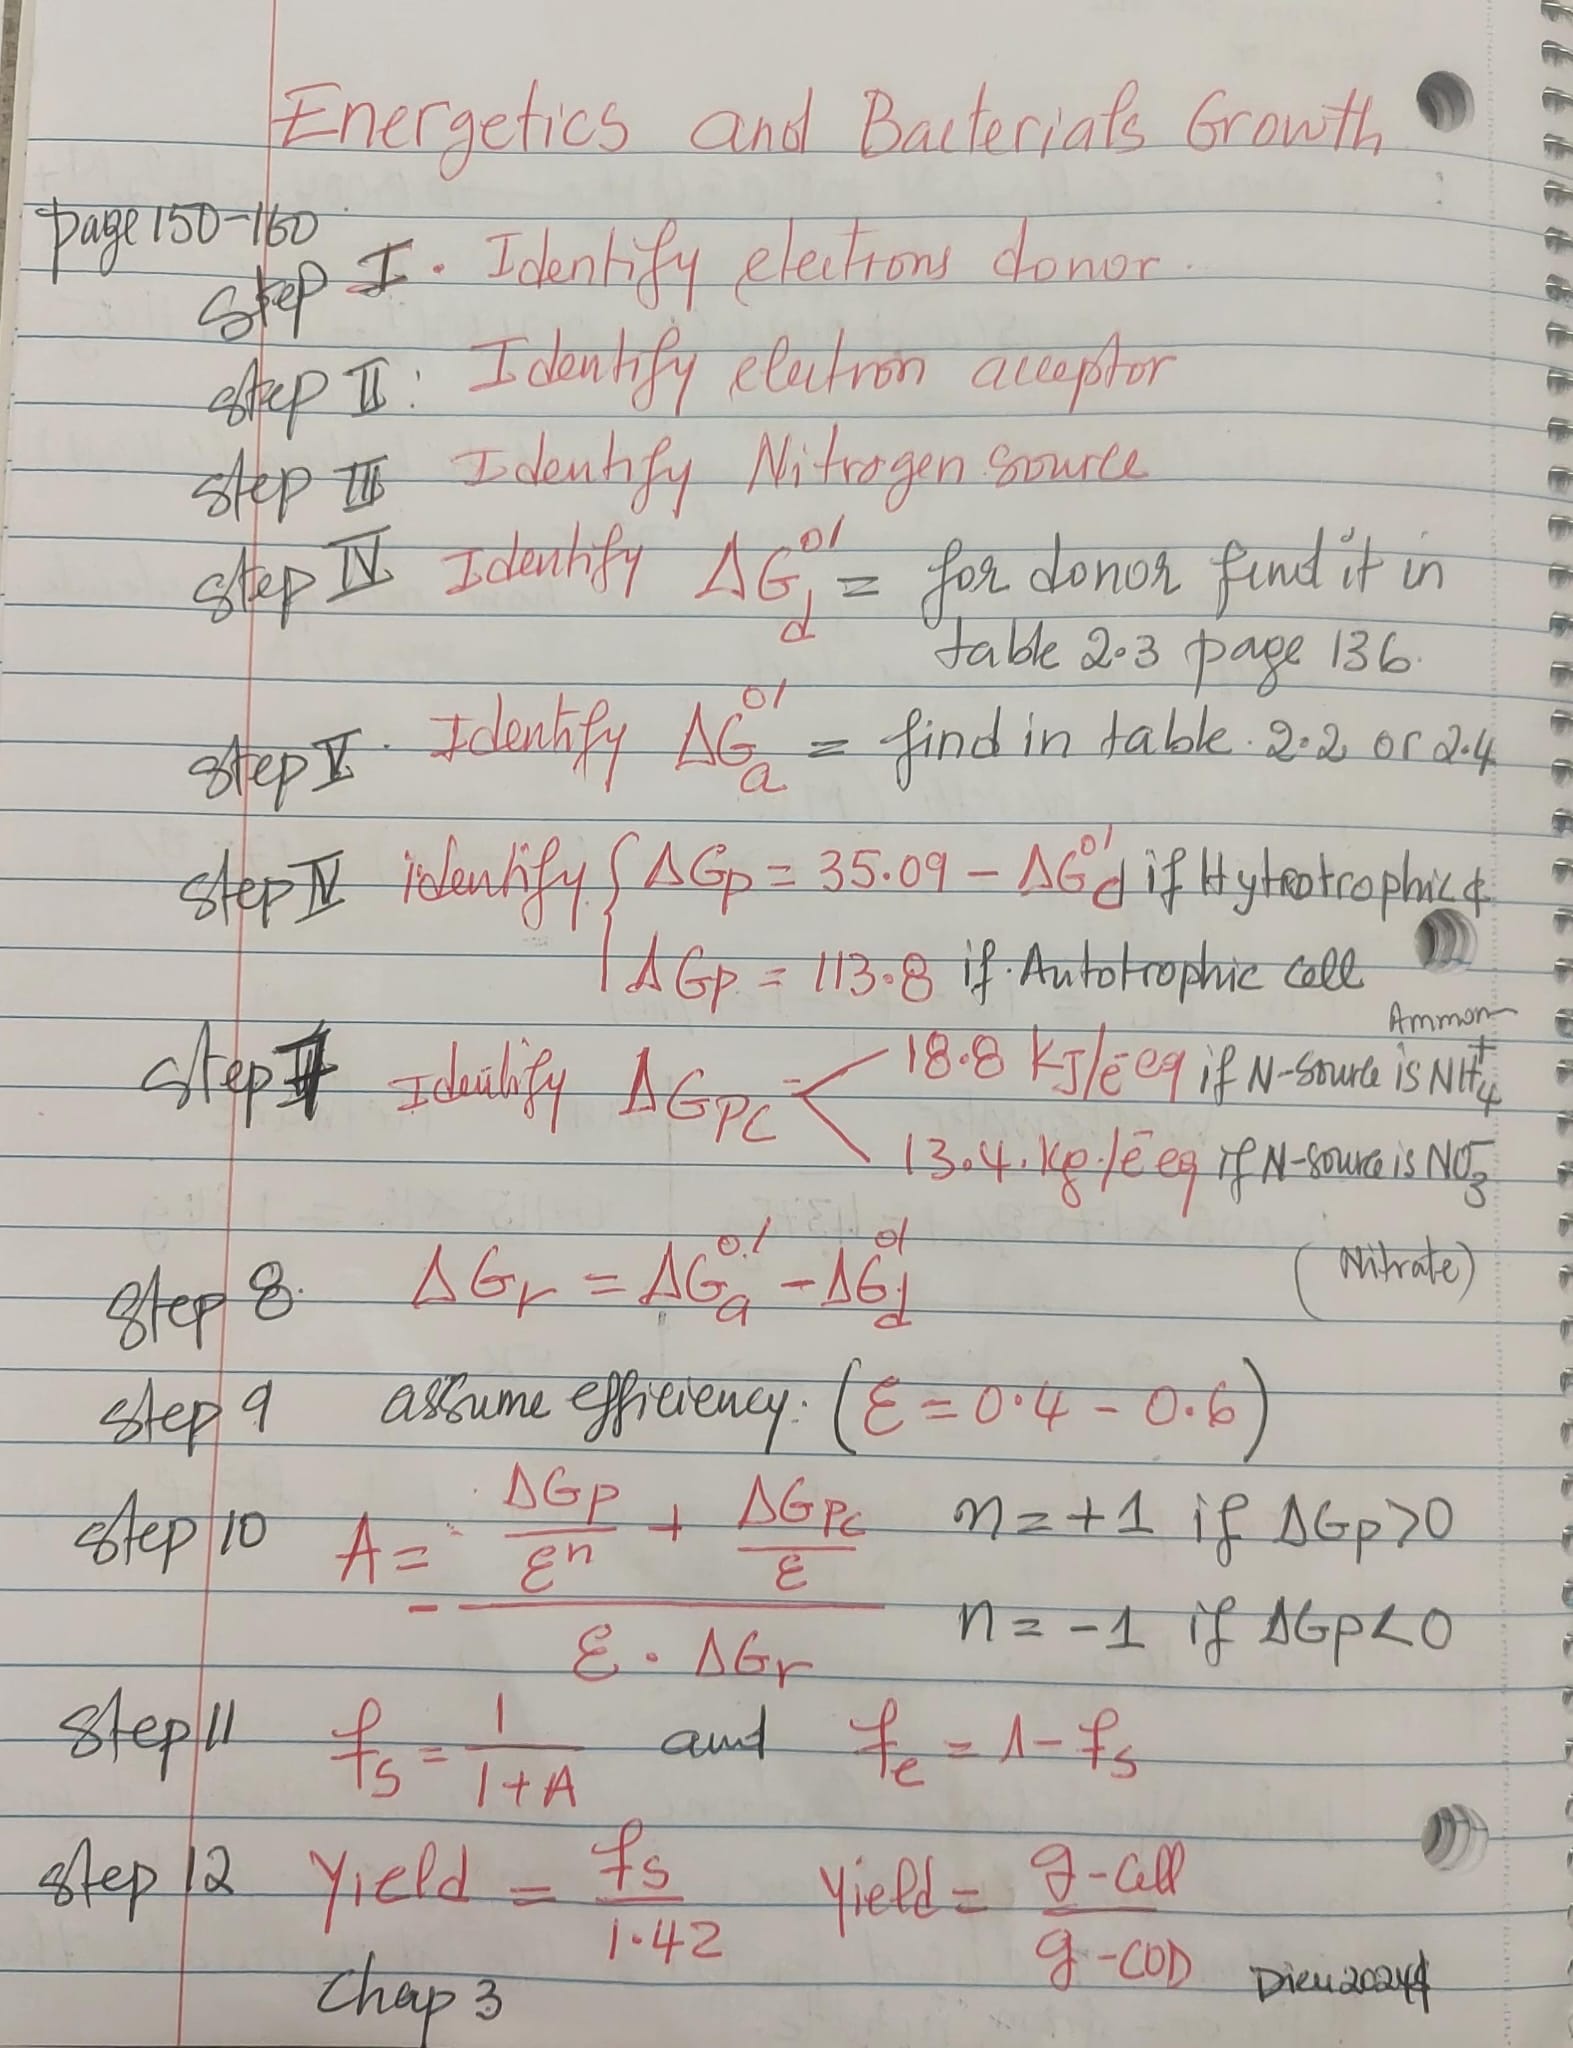 Energetics and Bacterials Growth
page 150-160
step I. Identify electrons donor.
step II: Identify electron acceptor
step III Identify Nitrogen source
step IV Identify ΔG°'d = for donor find it in
table 2.3 page 136.
step V. Identify ΔG°'a = find in table. 2.2 or 2.4
step IV identify { ΔGp = 35.09 - ΔG°'d if Hytrotrophic &
ΔGp = 113.8 if Autotrophic cell
Ammon
step Identify ΔGpc = 18.8 KJ/e̅ eq if N-source is NH4+
13.4. kg./e̅ eq if N-source is NO3-
(Nitrate)
step 8. ΔGr = ΔG°'a - ΔG°'d
step 9 assume efficiency. (ε = 0.4 - 0.6)
step 10 A = - (ΔGp/ε^n + ΔGpc/ε) / (ε . ΔGr) n = +1 if ΔGp>0
n = -1 if ΔGp<0
step 11 fs = 1/(1+A) and fe = 1 - fs
step 12 Yield = fs/1.42 Yield = g-cell/g-COD
Chap 3